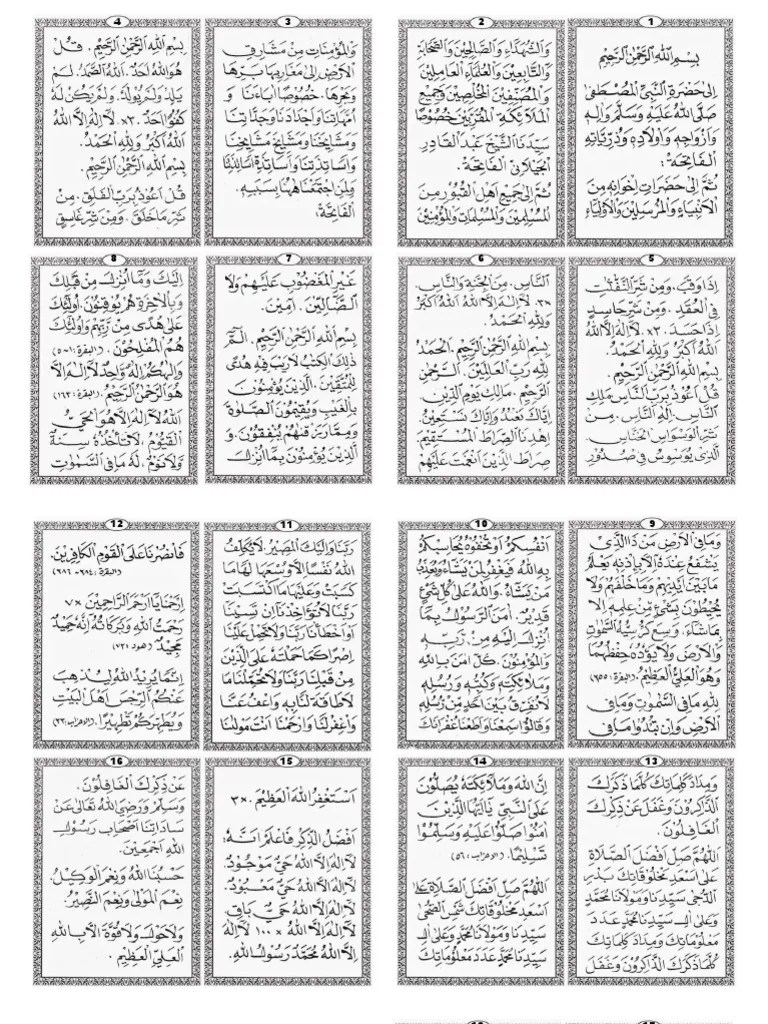 1
بِسْمِ اللهِ الرَّحْمٰنِ الرَّحِيْمِ
اِلٰى حَضْرَةِ النَّبِيِّ الْمُصْطَفٰى
صَلَّى اللهُ عَلَيْهِ وَسَلَّمَ وَاٰلِهِ
وَاَزْوَاجِهِ وَاَوْلَادِهِ وَذُرِّيَّاتِهِ
الْفَاتِحَةُ:
ثُمَّ اِلٰى حَضَرَاتِ اِخْوَانِهِ مِنَ
الْاَنْبِيَاءِ وَالْمُرْسَلِيْنَ وَالْاَوْلِيَاءِ
2
وَالشُّهَدَاءِ وَالصَّالِحِيْنَ وَالصَّحَابَةِ
وَالتَّابِعِيْنَ وَالْعُلَمَاءِ الْعَامِلِيْنَ
وَالْمُصَنِّفِيْنَ الْمُخْلِصِيْنَ وَجَمِيْعِ
الْمَلَائِكَةِ الْمُقَرَّبِيْنَ خُصُوْصًا
سَيِّدِنَا الشَّيْخِ عَبْدِ الْقَادِرِ
الْجَيْلَانِي الْفَاتِحَةُ:
ثُمَّ اِلٰى جَمِيْعِ اَهْلِ الْقُبُوْرِ مِنَ
الْمُسْلِمِيْنَ وَالْمُسْلِمَاتِ وَالْمُؤْمِنِيْنَ
3
وَالْمُؤْمِنَاتِ مِنْ مَشَارِقِ
الْاَرْضِ اِلٰى مَغَارِبِهَا بَرِّهَا
وَبَحْرِهَا، خُصُوْصًا اٰبَاءَنَا وَ
اُمَّهَاتِنَا وَاَجْدَادَنَا وَجَدَّاتِنَا
وَمَشَايِخَنَا وَمَشَايِخَ مَشَايِخِنَا
وَاَسَاتِذَتِنَا وَاَسَاتِذَةِ اَسَاتِذَتِنَا
وَلِمَنِ اجْتَمَعْنَا هٰهُنَا بِسَبَبِهِ.
الْفَاتِحَةُ:
4
بِسْمِ اللهِ الرَّحْمٰنِ الرَّحِيْمِ. قُلْ
هُوَ اللهُ اَحَدٌ. اَللهُ الصَّمَدُ. لَمْ
يَلِدْ وَلَمْ يُوْلَدْ. وَلَمْ يَكُنْ لَهُ
كُفُوًا اَحَدٌ. ×٣ لَا اِلٰهَ اِلَّا اللهُ
اَللهُ اَكْبَرُ وَلِلّٰهِ الْحَمْدُ.
بِسْمِ اللهِ الرَّحْمٰنِ الرَّحِيْمِ.
قُلْ اَعُوْذُ بِرَبِّ الْفَلَقِ. مِنْ
شَرِّ مَا خَلَقَ. وَمِنْ شَرِّ غَاسِقٍ
5
اِذَا وَقَبَ. وَمِنْ شَرِّ النَّفّٰثٰتِ
فِى الْعُقَدِ. وَمِنْ شَرِّ حَاسِدٍ
اِذَا حَسَدَ. ×٣ لَا اِلٰهَ اِلَّا اللهُ
اَللهُ اَكْبَرُ وَلِلّٰهِ الْحَمْدُ.
بِسْمِ اللهِ الرَّحْمٰنِ الرَّحِيْمِ.
قُلْ اَعُوْذُ بِرَبِّ النَّاسِ. مَلِكِ
النَّاسِ. اِلٰهِ النَّاسِ. مِنْ
شَرِّ الْوَسْوَاسِ الْخَنَّاسِ.
الَّذِى يُوَسْوِسُ فِى صُدُوْرِ
6
النَّاسِ. مِنَ الْجِنَّةِ وَالنَّاسِ.
×٣ لَا اِلٰهَ اِلَّا اللهُ اَللهُ اَكْبَرُ
وَلِلّٰهِ الْحَمْدُ.
بِسْمِ اللهِ الرَّحْمٰنِ الرَّحِيْمِ. اَلْحَمْدُ
لِلّٰهِ رَبِّ الْعَالَمِيْنَ. اَلرَّحْمٰنِ
الرَّحِيْمِ. مَالِكِ يَوْمِ الدِّيْنِ.
اِيَّاكَ نَعْبُدُ وَاِيَّاكَ نَسْتَعِيْنُ.
اِهْدِنَا الصِّرَاطَ الْمُسْتَقِيْمَ.
صِرَاطَ الَّذِيْنَ اَنْعَمْتَ عَلَيْهِمْ
7
غَيْرِ الْمَغْضُوْبِ عَلَيْهِمْ وَلَا
الضَّالِّيْنَ. اٰمِيْنَ.
بِسْمِ اللهِ الرَّحْمٰنِ الرَّحِيْمِ. الٓمّٓ
ذٰلِكَ الْكِتٰبُ لَا رَيْبَ فِيْهِ هُدًى
لِلْمُتَّقِيْنَ. الَّذِيْنَ يُؤْمِنُوْنَ
بِالْغَيْبِ وَيُقِيْمُوْنَ الصَّلٰوةَ
وَمِمَّا رَزَقْنٰهُمْ يُنْفِقُوْنَ. وَ
الَّذِيْنَ يُؤْمِنُوْنَ بِمَا اُنْزِلَ
8
اِلَيْكَ وَمَا اُنْزِلَ مِنْ قَبْلِكَ
وَبِالْاٰخِرَةِ هُمْ يُوْقِنُوْنَ. اُولٰئِكَ
عَلٰى هُدًى مِنْ رَبِّهِمْ وَاُولٰئِكَ
هُمُ الْمُفْلِحُوْنَ. (البقرة: ١-٥)
وَاِلٰهُكُمْ اِلٰهٌ وَّاحِدٌ لَا اِلٰهَ اِلَّا
هُوَ الرَّحْمٰنُ الرَّحِيْمُ. (البقرة: ١٦٣)
اَللهُ لَا اِلٰهَ اِلَّا هُوَ الْحَيُّ
الْقَيُّوْمُ. لَا تَأْخُذُهُ سِنَةٌ
وَلَا نَوْمٌ. لَهُ مَا فِى السَّمٰوٰتِ
9
وَمَا فِى الْاَرْضِ مَنْ ذَا الَّذِى
يَشْفَعُ عِنْدَهُ اِلَّا بِاِذْنِهِ يَعْلَمُ
مَا بَيْنَ اَيْدِيْهِمْ وَمَا خَلْفَهُمْ وَلَا
يُحِيْطُوْنَ بِشَيْءٍ مِنْ عِلْمِهِ اِلَّا
بِمَا شَاءَ. وَسِعَ كُرْسِيُّهُ السَّمٰوٰتِ
وَالْاَرْضَ وَلَا يَؤُدُهُ حِفْظُهُمَا
وَهُوَ الْعَلِيُّ الْعَظِيْمُ. (البقرة: ٢٥٥)
لِلّٰهِ مَا فِى السَّمٰوٰتِ وَمَا فِى
الْاَرْضِ وَاِنْ تُبْدُوْا مَا فِى
10
اَنْفُسِكُمْ اَوْ تُخْفُوْهُ يُحَاسِبْكُمْ
بِهِ اللهُ فَيَغْفِرُ لِمَنْ يَشَاءُ وَيُعَذِّبُ
مَنْ يَشَاءُ. وَاللهُ عَلٰى كُلِّ شَيْءٍ
قَدِيْرٌ. اٰمَنَ الرَّسُوْلُ بِمَا
اُنْزِلَ اِلَيْهِ مِنْ رَبِّهِ
وَالْمُؤْمِنُوْنَ. كُلٌّ اٰمَنَ بِاللهِ
وَمَلَائِكَتِهِ وَكُتُبِهِ وَرُسُلِهِ
لَا نُفَرِّقُ بَيْنَ اَحَدٍ مِنْ رُسُلِهِ
وَقَالُوْا سَمِعْنَا وَاَطَعْنَا غُفْرَانَكَ
11
رَبَّنَا وَاِلَيْكَ الْمَصِيْرُ. لَا يُكَلِّفُ
اللهُ نَفْسًا اِلَّا وُسْعَهَا لَهَا مَا
كَسَبَتْ وَعَلَيْهَا مَا اكْتَسَبَتْ
رَبَّنَا لَا تُؤَاخِذْنَا اِنْ نَسِيْنَا
اَوْ اَخْطَأْنَا رَبَّنَا وَلَا تَحْمِلْ عَلَيْنَا
اِصْرًا كَمَا حَمَلْتَهُ عَلَى الَّذِيْنَ
مِنْ قَبْلِنَا رَبَّنَا وَلَا تُحَمِّلْنَا مَا
لَا طَاقَةَ لَنَا بِهِ وَاعْفُ عَنَّا
وَاغْفِرْ لَنَا وَارْحَمْنَا اَنْتَ مَوْلٰنَا
12
فَانْصُرْنَا عَلَى الْقَوْمِ الْكَافِرِيْنَ.
(البقرة: ٢٨٤-٢٨٦)
اِرْحَمْنَا يَا اَرْحَمَ الرَّاحِمِيْنَ ×٧
رَحْمَتُ اللهِ وَبَرَكَاتُهُ اِنَّهُ حَمِيْدٌ
مَجِيْدٌ. (هود: ٧٣)
اِنَّمَا يُرِيْدُ اللهُ لِيُذْهِبَ
عَنْكُمُ الرِّجْسَ اَهْلَ الْبَيْتِ
وَيُطَهِّرَكُمْ تَطْهِيْرًا. (الاحزاب: ٣٣)
13
وَمِدَادَ كَلِمَاتِكَ كُلَّمَا ذَكَرَكَ
الذَّاكِرُوْنَ وَغَفَلَ عَنْ ذِكْرِكَ
الْغَافِلُوْنَ.
اَللّٰهُمَّ صَلِّ اَفْضَلَ الصَّلَاةِ
عَلٰى اَسْعَدِ مَخْلُوْقَاتِكَ بَدْرِ
الدُّجٰى سَيِّدِنَا وَمَوْلَانَا مُحَمَّدٍ
وَعَلٰى اٰلِ سَيِّدِنَا مُحَمَّدٍ عَدَدَ
مَعْلُوْمَاتِكَ وَمِدَادَ كَلِمَاتِكَ
كُلَّمَا ذَكَرَكَ الذَّاكِرُوْنَ وَغَفَلَ
14
اِنَّ اللهَ وَمَلَائِكَتَهُ يُصَلُّوْنَ
عَلَى النَّبِيِّ يٰاَيُّهَا الَّذِيْنَ
اٰمَنُوْا صَلُّوْا عَلَيْهِ وَسَلِّمُوْا
تَسْلِيْمًا. (الاحزاب: ٥٦)
اَللّٰهُمَّ صَلِّ اَفْضَلَ الصَّلَاةِ عَلٰى
اَسْعَدِ مَخْلُوْقَاتِكَ شَمْسِ الضُّحٰى
سَيِّدِنَا وَمَوْلَانَا مُحَمَّدٍ وَعَلٰى اٰلِ
سَيِّدِنَا مُحَمَّدٍ عَدَدَ مَعْلُوْمَاتِكَ
15
اَسْتَغْفِرُ اللهَ الْعَظِيْمَ. ×٣
اَفْضَلُ الذِّكْرِ فَاعْلَمْ اَنَّهُ:
لَا اِلٰهَ اِلَّا اللهُ حَيٌّ مَوْجُوْدٌ.
لَا اِلٰهَ اِلَّا اللهُ حَيٌّ مَعْبُوْدٌ.
لَا اِلٰهَ اِلَّا اللهُ حَيٌّ بَاقٍ.
لَا اِلٰهَ اِلَّا اللهُ ×١٠٠ لَا اِلٰهَ
اِلَّا اللهُ مُحَمَّدٌ رَسُوْلُ اللهِ.
16
عَنْ ذِكْرِكَ الْغَافِلُوْنَ.
وَسَلِّمْ وَرَضِيَ اللهُ تَعَالٰى عَنْ
سَادَاتِنَا اَصْحَابِ رَسُوْلِ
اللهِ اَجْمَعِيْنَ.
حَسْبُنَا اللهُ وَنِعْمَ الْوَكِيْلُ.
نِعْمَ الْمَوْلٰى وَنِعْمَ النَّصِيْرُ.
وَلَا حَوْلَ وَلَا قُوَّةَ اِلَّا بِاللهِ
الْعَلِيِّ الْعَظِيْمِ.